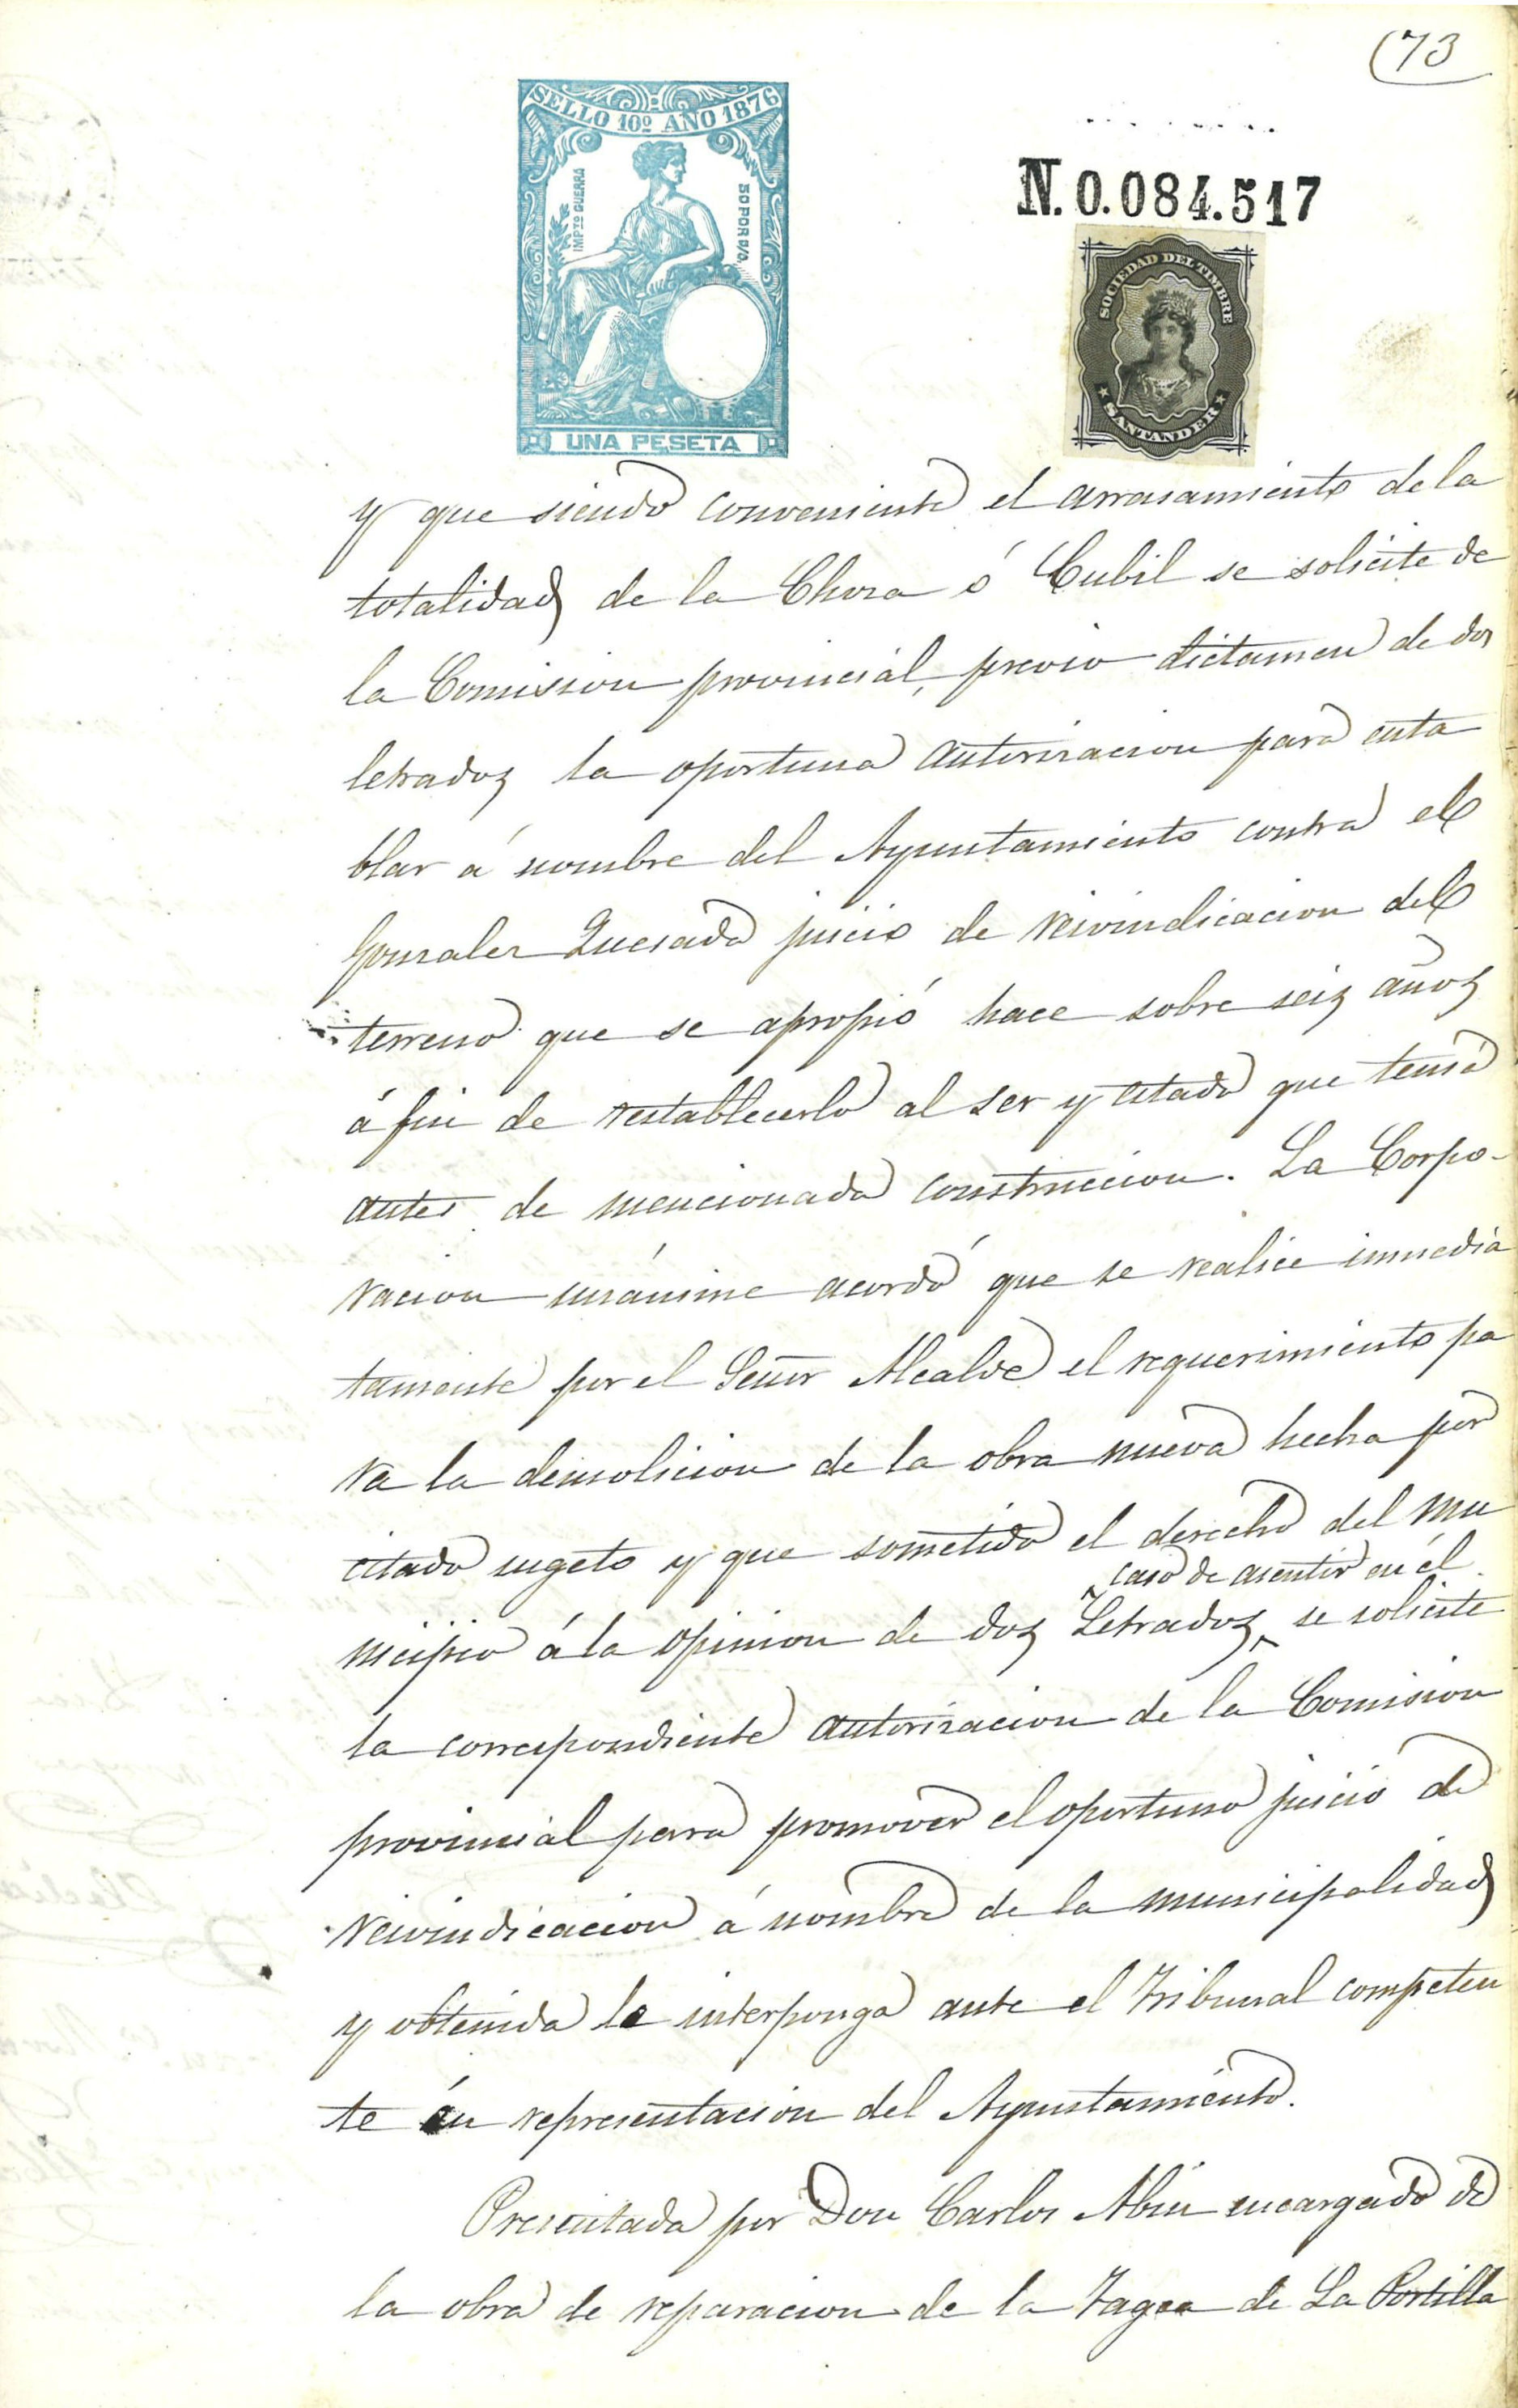 (73
SELLO 10º AÑO 1876
IMPTO GUERRA
50 POR 0/0
UNA PESETA
N. 0.084.517
SOCIEDAD DEL TIMBRE
SANTANDER
y que siendo conveniente el arrasamiento de la
totalidad de la Choza ó Cubil se solicite de
la Comision provincial, previo dictamen de dos
letrados la oportuna autorizacion para enta
blar á nombre del Ayuntamiento contra el
Gonzalez Quesada juicio de reivindicacion del
terreno que se apropió hace sobre seis años
á fin de restablecerlo al ser y estado que tenia
antes de mencionada construccion. La Corpo-
racion unánime acordó que se realice inmedia
tamente por el Señor Alcalde el requerimiento pa
ra la demolicion de la obra nueva hecha por
citado sugeto y que sometido el derecho del mu
caso de asentir en él
nicipio á la opinion de dos Letrados, se solicite
la correspondiente autorizacion de la Comision
provincial para promover el oportuno juicio de
reivindicacion á nombre de la municipalidad
y obtenida le interponga ante el Tribunal competen
te en representacion del Ayuntamiento.
Presentada por Don Carlos Abin encargado de
la obra de reparacion de la de La Portilla